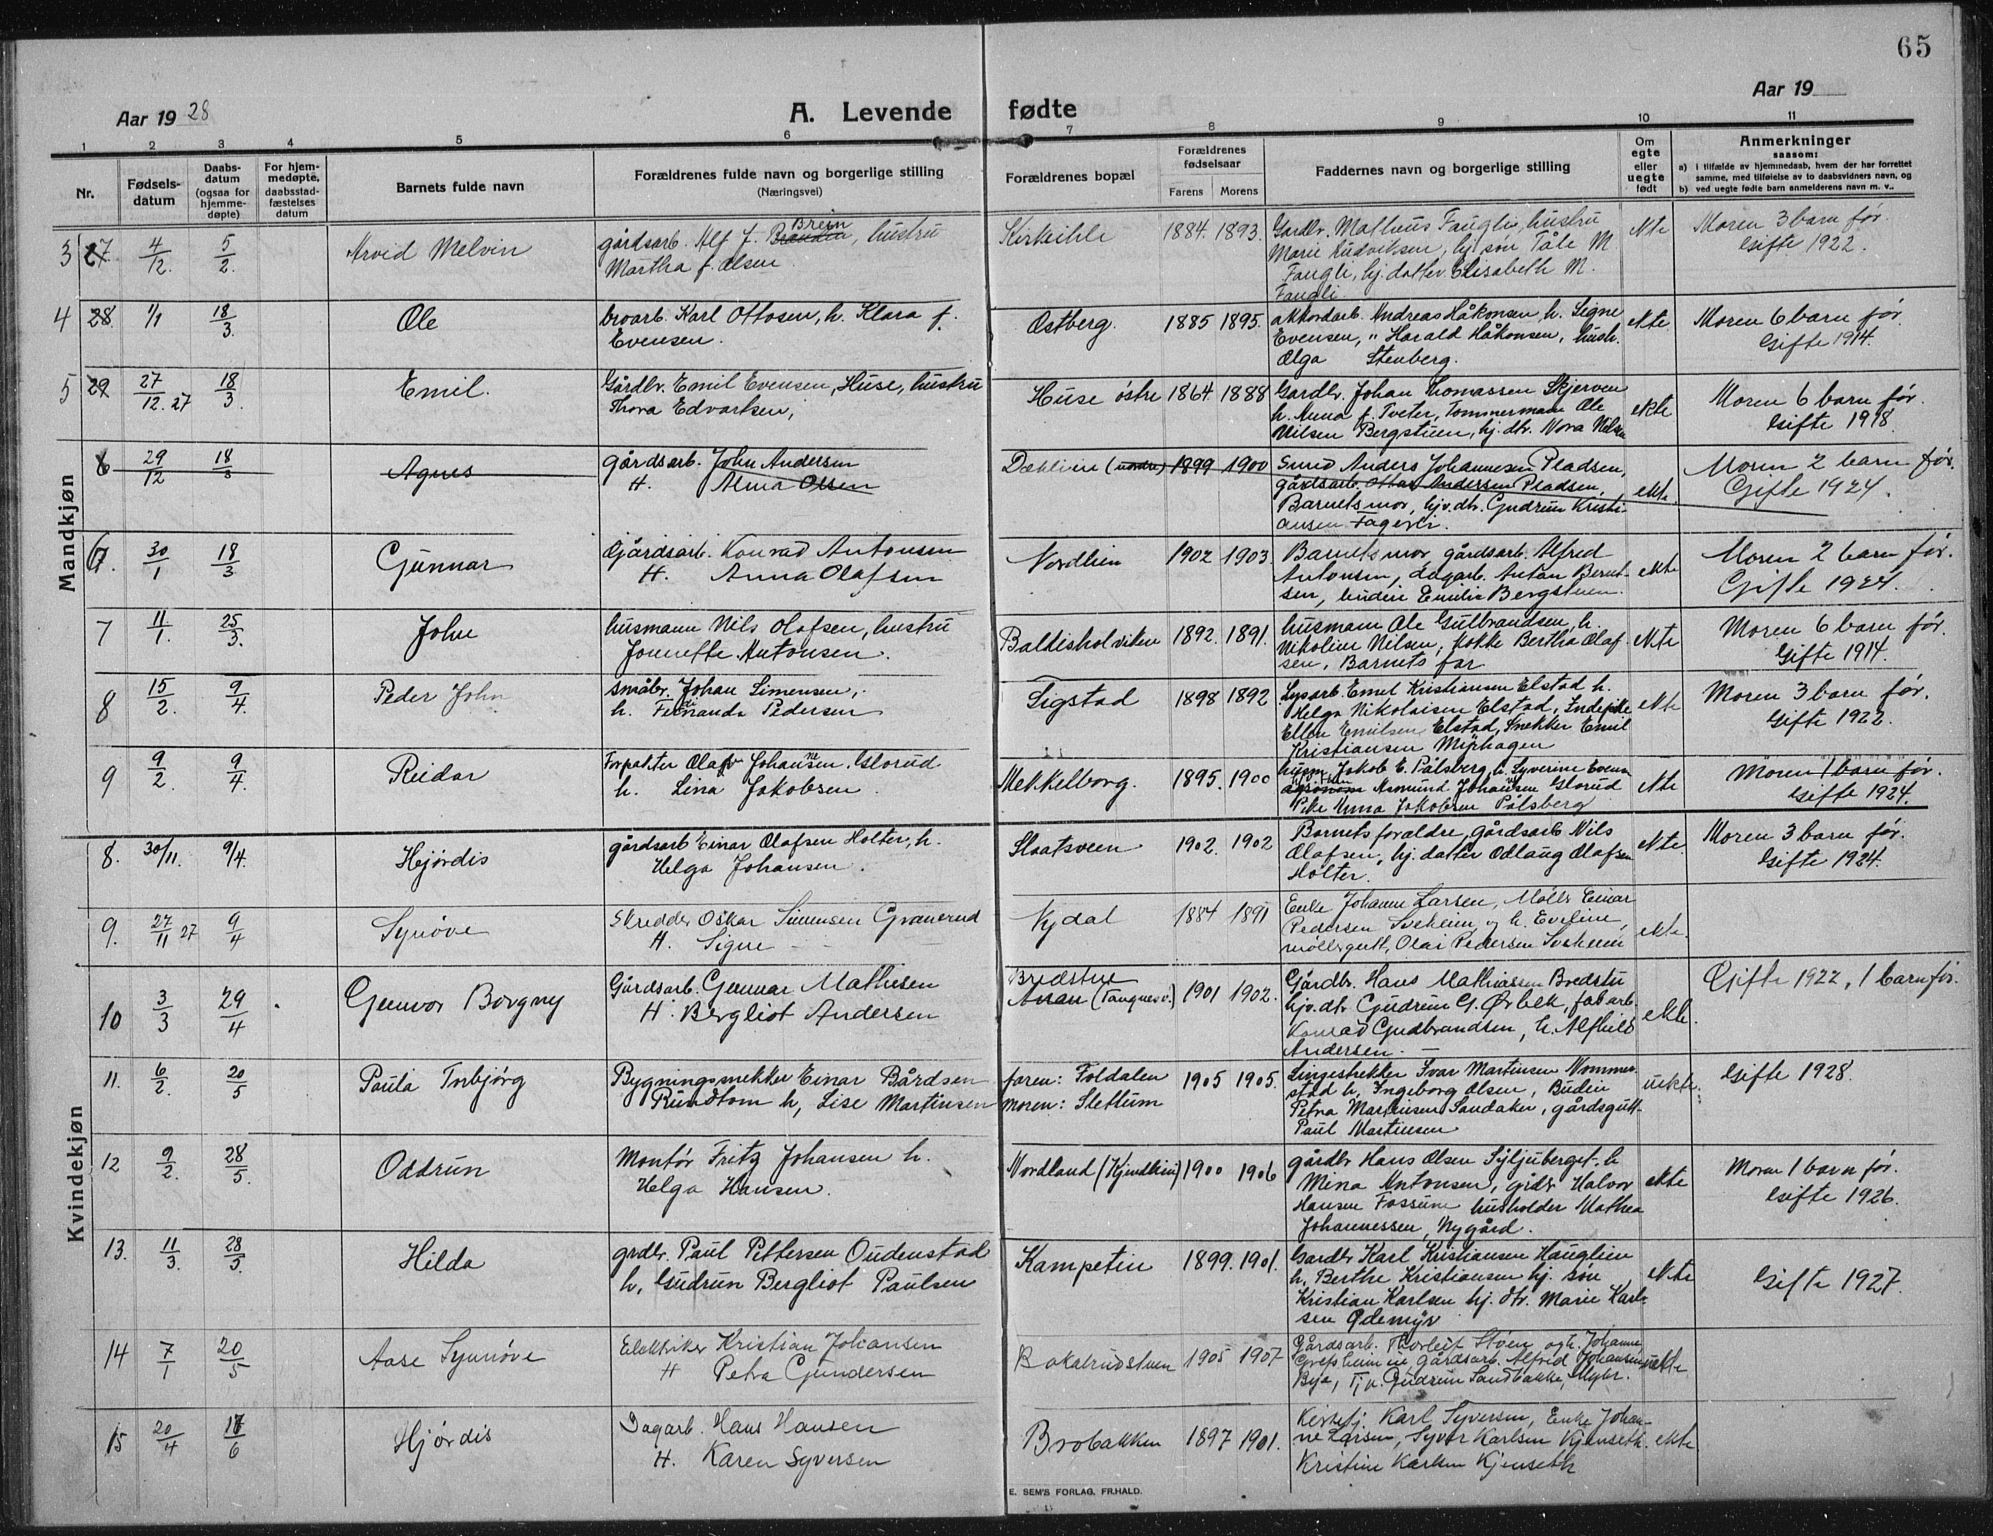 65
Aar 1928
A. Levende fødte
Aar 19
1 2 3 4 5 6 7 8 9 10 11
Nr.
Fødsels-
datum
Daabs-
datum
(ogsaa for
hjemme-
døpte)
For hjem-
medøpte,
daabsstad-
fæstelses
datum
Barnets fulde navn
Forældrenes fulde navn og borgerlige stilling
(Næringsvei)
Forældrenes bopæl
Forældrenes
fødselsaar
Farens Morens
Faddernes navn og borgerlige stilling
Om
egte
eller
uegte
født
Anmerkninger
saasom:
a) i tilfælde av hjemmedaab, hvem der har forrettet
samme, med tilføielse av to daabsvidners navn, og
b) ved uegte fødte barn anmelderens navn m. v..
Mandkjøn
3 27 4/12. 5/2. Arvid Melvin
gårdsarb. Alf J. Brein, hustru
Martha f. Olsen
Kirkeihle 1884 1893.
Gardbr. Matheus Fangli, hustru
Marie Ludviksen, hj. søn Tåle M
Fangli, hj. datter Elisabeth M.
Fangli
ekte
Moren 3 barn før.
Gifte 1922.
4 28. 1/1 18/3. Ole
broarb. Karl Ottosen, h. Klara f.
Evensen.
Østberg. 1885 1895.
akkordarb. Andreas Håkonsen, h. Signe
Evensen, " Harald Håkonsen, hush.
Olga Stenberg.
ekte
Moren 6 barn før.
Gifte 1914.
5 29 27/12. 27 18/3. Emil.
Gårdbr. Emil Evensen, Huse, hustru
Thora Edvartsen,
Huse østre 1864 1888
Gardbr. Johan Thomassen Skjerven
h. Anna f. Tveter, tømmermann Ole
Nilsen Bergstuen, hj. dtr. Nora Nilsen
ekte
Moren 6 barn før.
Gifte 1918.
6 29/12 18/3 Agnes
Gårdsarb. John Andersen
H. Alma Olsen
Dæhlien (nordre) 1899 1900
Smed Anders Johannesen Pladsen,
gårdsarb. Ottar Andersen Pladsen,
Barnets mor, hjv. dtr. Gudrun Kristi-
ansen Fagerli.
ekte.
Moren 2 barn før.
Gifte 1924.
6 30/1 18/3 Gunnar
Gårdsarb. Konrad Antonsen
H. Anna Olafsen
Nordlien 1902 1903.
Barnets mor, gårdsarb. Alfred
Antonsen, dagarb. Anton Bernt-
sen, budeie Emilie Bergstuen.
ekte
Moren 2 barn før.
Gifte 1924.
7 11/1. 25/3. John
husmann Nils Olafsen, hustru
Jonnette Antonsen.
Baldisholviken 1892. 1891.
husmann Ole Gulbrandsen, h.
Nikoline Nilsen, kokke Bertha Olaf
sen, Barnets far
ekte
Moren 6 barn før.
Gifte 1914.
8 15/2. 9/4. Peder John
småbr. Johan Simensen,
h. Fernanda Pedersen
Sigstad 1898 1892
Lysarb. Emil Kristiansen Elstad h.
Helga Nikolaisen Elstad,
Ellen Emilsen Elstad, Snekker Emil
Kristiansen
ekte
Moren 3 barn før.
Gifte 1922.
9 9/2. 9/4. Reidar
Forpakter Olaf Johansen Glorud
h. Lina Jakobsen.
Mekkelborg. 1895. 1900
husm. Jakob E. Pålsberg h. Syverine Evens
Asmund Johansen Glorud
Pike Anna Jakobsen Pålsberg
ekte
Moren 1 barn før.
Gifte 1924.
Kvindekjøn
8. 30/11. 9/4. Hjørdis
gårdsarb Einar Olafsen Holter, h.
Helga Johansen.
Slaatsveen 1902. 1902
Barnets foreldre, gårdsarb Nils
Olafsen, hj. datter Odlaug Olafsen
Holter.
ekte.
Moren 3 barn før.
Gifte 1924.
9. 27/11 27 9/4 Synøve
Skredder Oskar Simensen Granerud
H. Signe
Nydal 1884 1891
Enke Johanne Larsen, Møller Einar
Pedersen Sveheim og h. Eveline,
møllergutt, Olai Pedersen Sveheim
ekte.
10 3/3 29/4 Gunvor Borgny
Gårdsarb. Gunnar Mathisen
H. Bergliot Andersen
Bredstue
(Tangnesv.) 1901 1902.
Gårdbr. Hans Mathiassen Bredstu
hjv. dtr Gudrun G. Ørbek, fab arb.
Konrad Gudbrandsen, h. Alfhild
Andersen.
ekte.
Gifte 1922, 1 barn før.
11. 6/2. 20/5 Paula Torbjørg
Bygningssnekker Einar Bårdsen
Rundtom h, Lise Martinsen
faren: Foldalen
moren: Slettum
1905 1905.
Lingestrekker Ivar Martinsen Nommer-
stad h, Ingeborg Olsen, Budeie
Petra Martinsen Sandaker, gårdsgutt
Paul Martinsen
uekte.
Gifte 1928.
12 9/2. 28/5. Oddrun
Montør Fritz Johansen h.
Helga Hansen.
Nordland (Kjindlien) 1900 1906
gårdbr Hans Olsen Syljuberget h
Mina Antonsen, grdbr Halvor
Hansen Fossum husholder Mathea
Johannessen, Nygård.
ekte
Moren 1 barn før.
Gifte 1926.
13. 11/3. 28/5. Hilda
grdbr. Paul Pettersen Oudenstad
h, Gudrun Bergliot Paulsen
Kampetin 1899. 1901.
Gardbr Karl Kristiansen Hauglien
h, Berthe Kristiansen hj. søn
Kristian Karlsen hj. dtr. Marie Karl-
sen Ødemyr
ekte
Gifte 1927.
14 7/1 20/5 Aase Synnøve
Elektriker Kristian Johansen
H Petra Gundersen
Bakalrudstuen 1905 1907
Gårdsarb. Thorleif Støen og h. Johanne,
Grefsheim ne gårdsarb. Alfred Johansen
Bye, Tj. p. Gudrun Sandbakke,
uekte
15 20/4 17/6 Hjørdis
Dagarb. Hans Hansen
H. Karen Syversen
Brobakken 1897 1901.
Karl Syversen, Enke Johan-
ne Larsen, Syver Karlsen Kjenseth.
Kristine Karlsen Kjenseth
ekte
E. SEM'S FORLAG, FR.HALD.